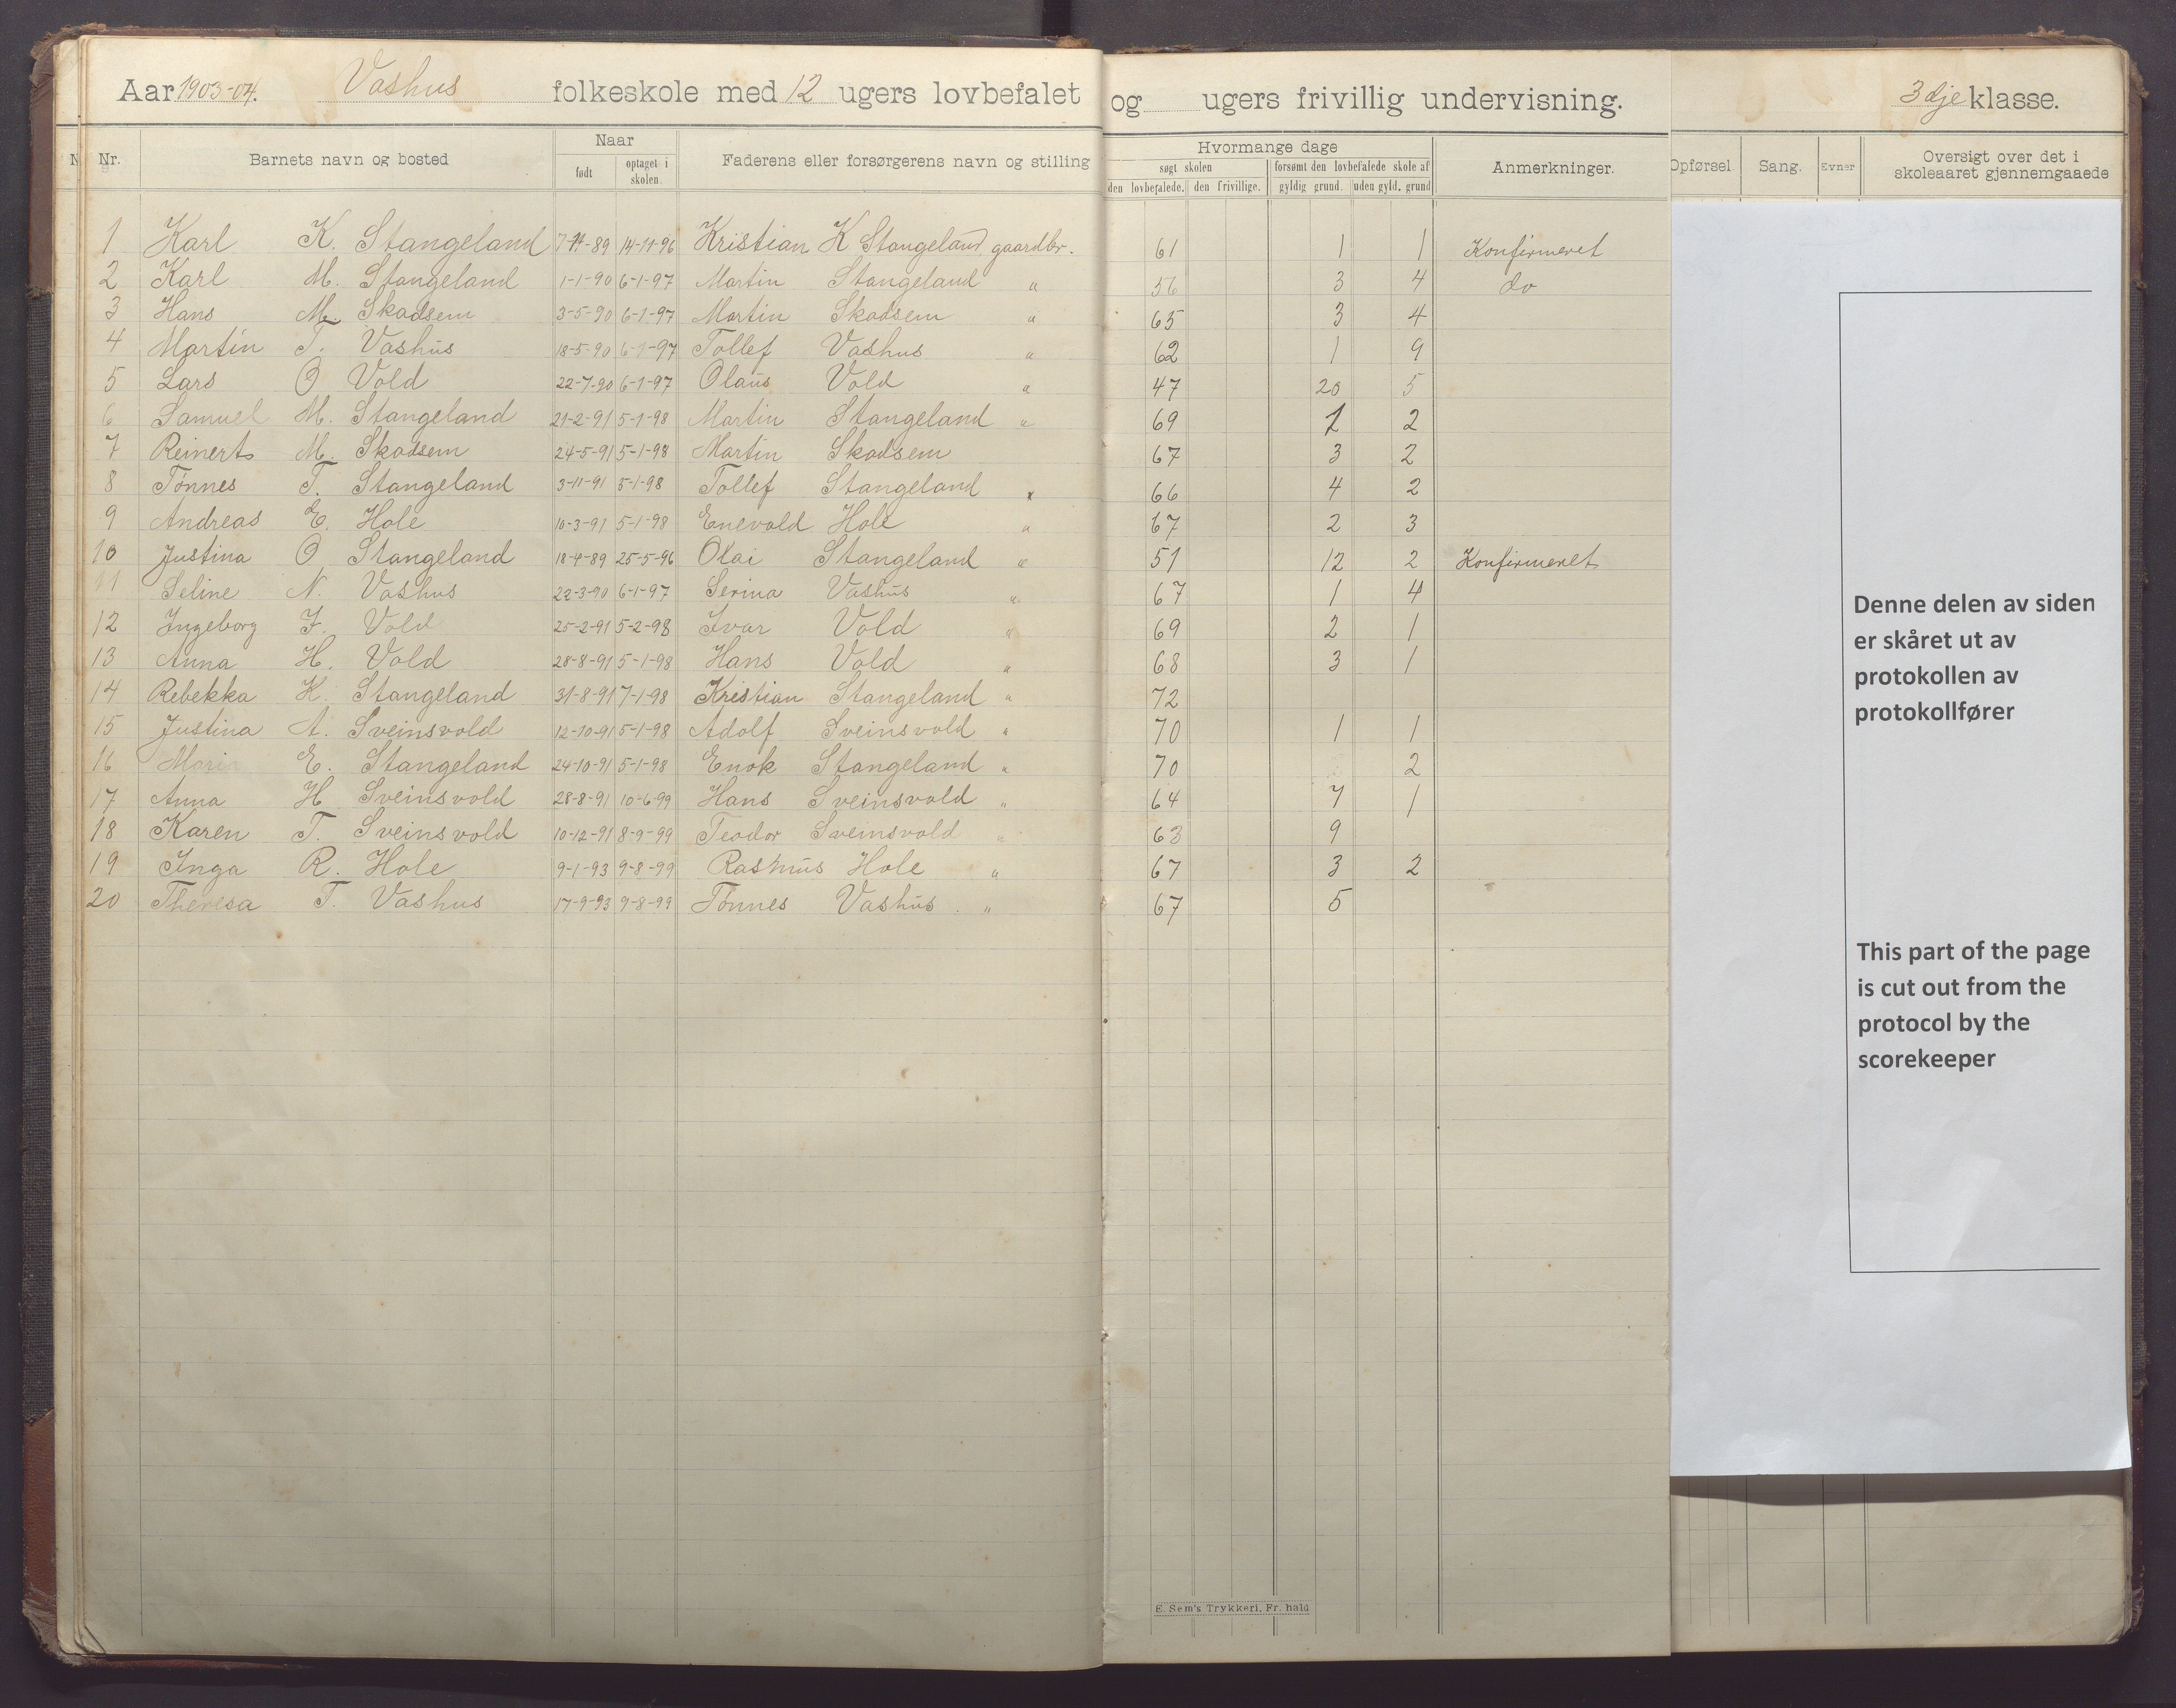 Aar 1903-04. Vashus folkeskole med 12 ugers lovbefalet og ugers frivillig undervisning. 3dje klasse.
Nr. Barnets navn og bosted Naar født optaget i skolen. Faderens eller forsørgerens navn og stilling Hvormange dage søgt skolen den lovbefalede. den frivillige. forsømt den lovbefalede skole af gyldig grund. uden gyld. grund Anmerkninger. Opførsel. Sang. Evner Oversigt over det i skoleaaret gjennemgaaede
1 Karl K. Stangeland 7-11-89 14-11-96 Kristian K Stangeland gaardbr. 61 1 1 Konfirmeret
2 Karl M. Stangeland 1-1-90 6-1-97 Martin Stangeland " 56 3 4 do
3 Hans M. Skadsem 3-5-90 6-1-97 Martin Skadsem " 65 3 4
4 Martin T. Vashus 18-5-90 6-1-97 Tollef Vashus " 62 1 9
5 Lars O Vold 22-7-90 6-1-97 Olaus Vold " 47 20 5
6 Samuel M. Stangeland 21-2-91 5-1-98 Martin Stangeland " 69 1 2
7 Reinert M. Skadsem 24-5-91 5-1-98 Martin Skadsem 67 3 2
8 Tønnes T. Stangeland 3-11-91 5-1-98 Tollef Stangeland " 66 4 2
9 Andreas E. Hole 10-3-91 5-1-98 Enevald Hole " 67 2 3
10 Justina O Stangeland 18-4-89 25-5-96 Olai Stangeland " 51 12 2 Konfirmeret
11 Seline N. Vashus 22-3-90 6-1-97 Serina Vashus " 67 1 4
12 Ingeborg I. Vold 25-2-91 5-2-98 Ivar Vold " 69 2 1
13 Anna H. Vold 28-8-91 5-1-98 Hans Vold " 68 3 1
14 Rebekka K. Stangeland 31-8-91 7-1-98 Kristian Stangeland " 72
15 Justina A. Sveinsvold 12-10-91 5-1-98 Adolf Sveinsvold " 70 1 1
16 E. Stangeland 24-10-91 5-1-98 Enok Stangeland " 70 2
17 Anna H Sveinsvold 28-8-91 10-6-99 Hans Sveinsvold " 64 7 1
18 Karen T. Sveinsvold 10-12-91 8-9-99 Teodor Sveinsvold " 63 9
19 Inga R. Hole 9-1-93 9-8-99 Rasmus Hole " 67 3 2
20 Theresa T. Vashus 17-9-93 9-8-99 Tønnes Vashus. " 67 5
E. Sem's Trykkeri, Fr. hald
Denne delen av siden
er skåret ut av
protokollen av
protokollfører
This part of the page
is cut out from the
protocol by the
scorekeeper